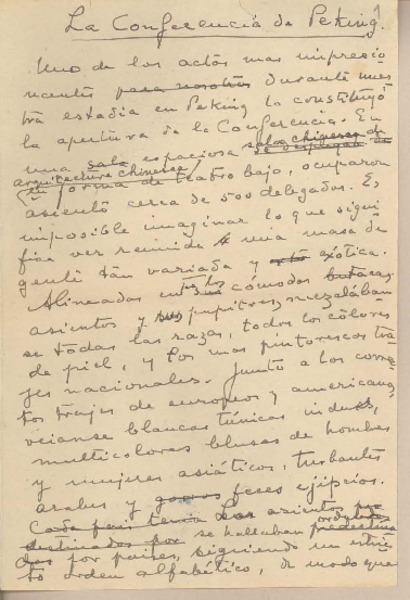 La Conferencia de Peking
1
Uno de los actos mas impresio
nantes para nosotros durante nues
tra estadia en Peking lo constituyó
la apertura de la Conferencia. En
una sala espaciosa sala chinesca de
arquitectura chinesca
en forma de teatro bajo, ocuparon
asiento cerca de 500 delegados. Es
imposible imaginar lo que signi
fica ver reunida a una masa de
gente tan variada y exótica.
Alineadas en los cómodas butacas
asientos y sus pupitres, mezclában
se todas las razas, todos los colores
de piel, y los mas pintorescos tra
jes nacionales. Junto a los corree
tos trajes de europeos y americanos
veianse blancas túnicas indues,
multicolores blusas de hombres
y mujeres asiáticos, turbantes
arabes y gorros feces ejipcios.
Cada pais tenia Los asientos
destinados por se hallaban
por países, siguiendo un estric
to orden alfabético, de modo que